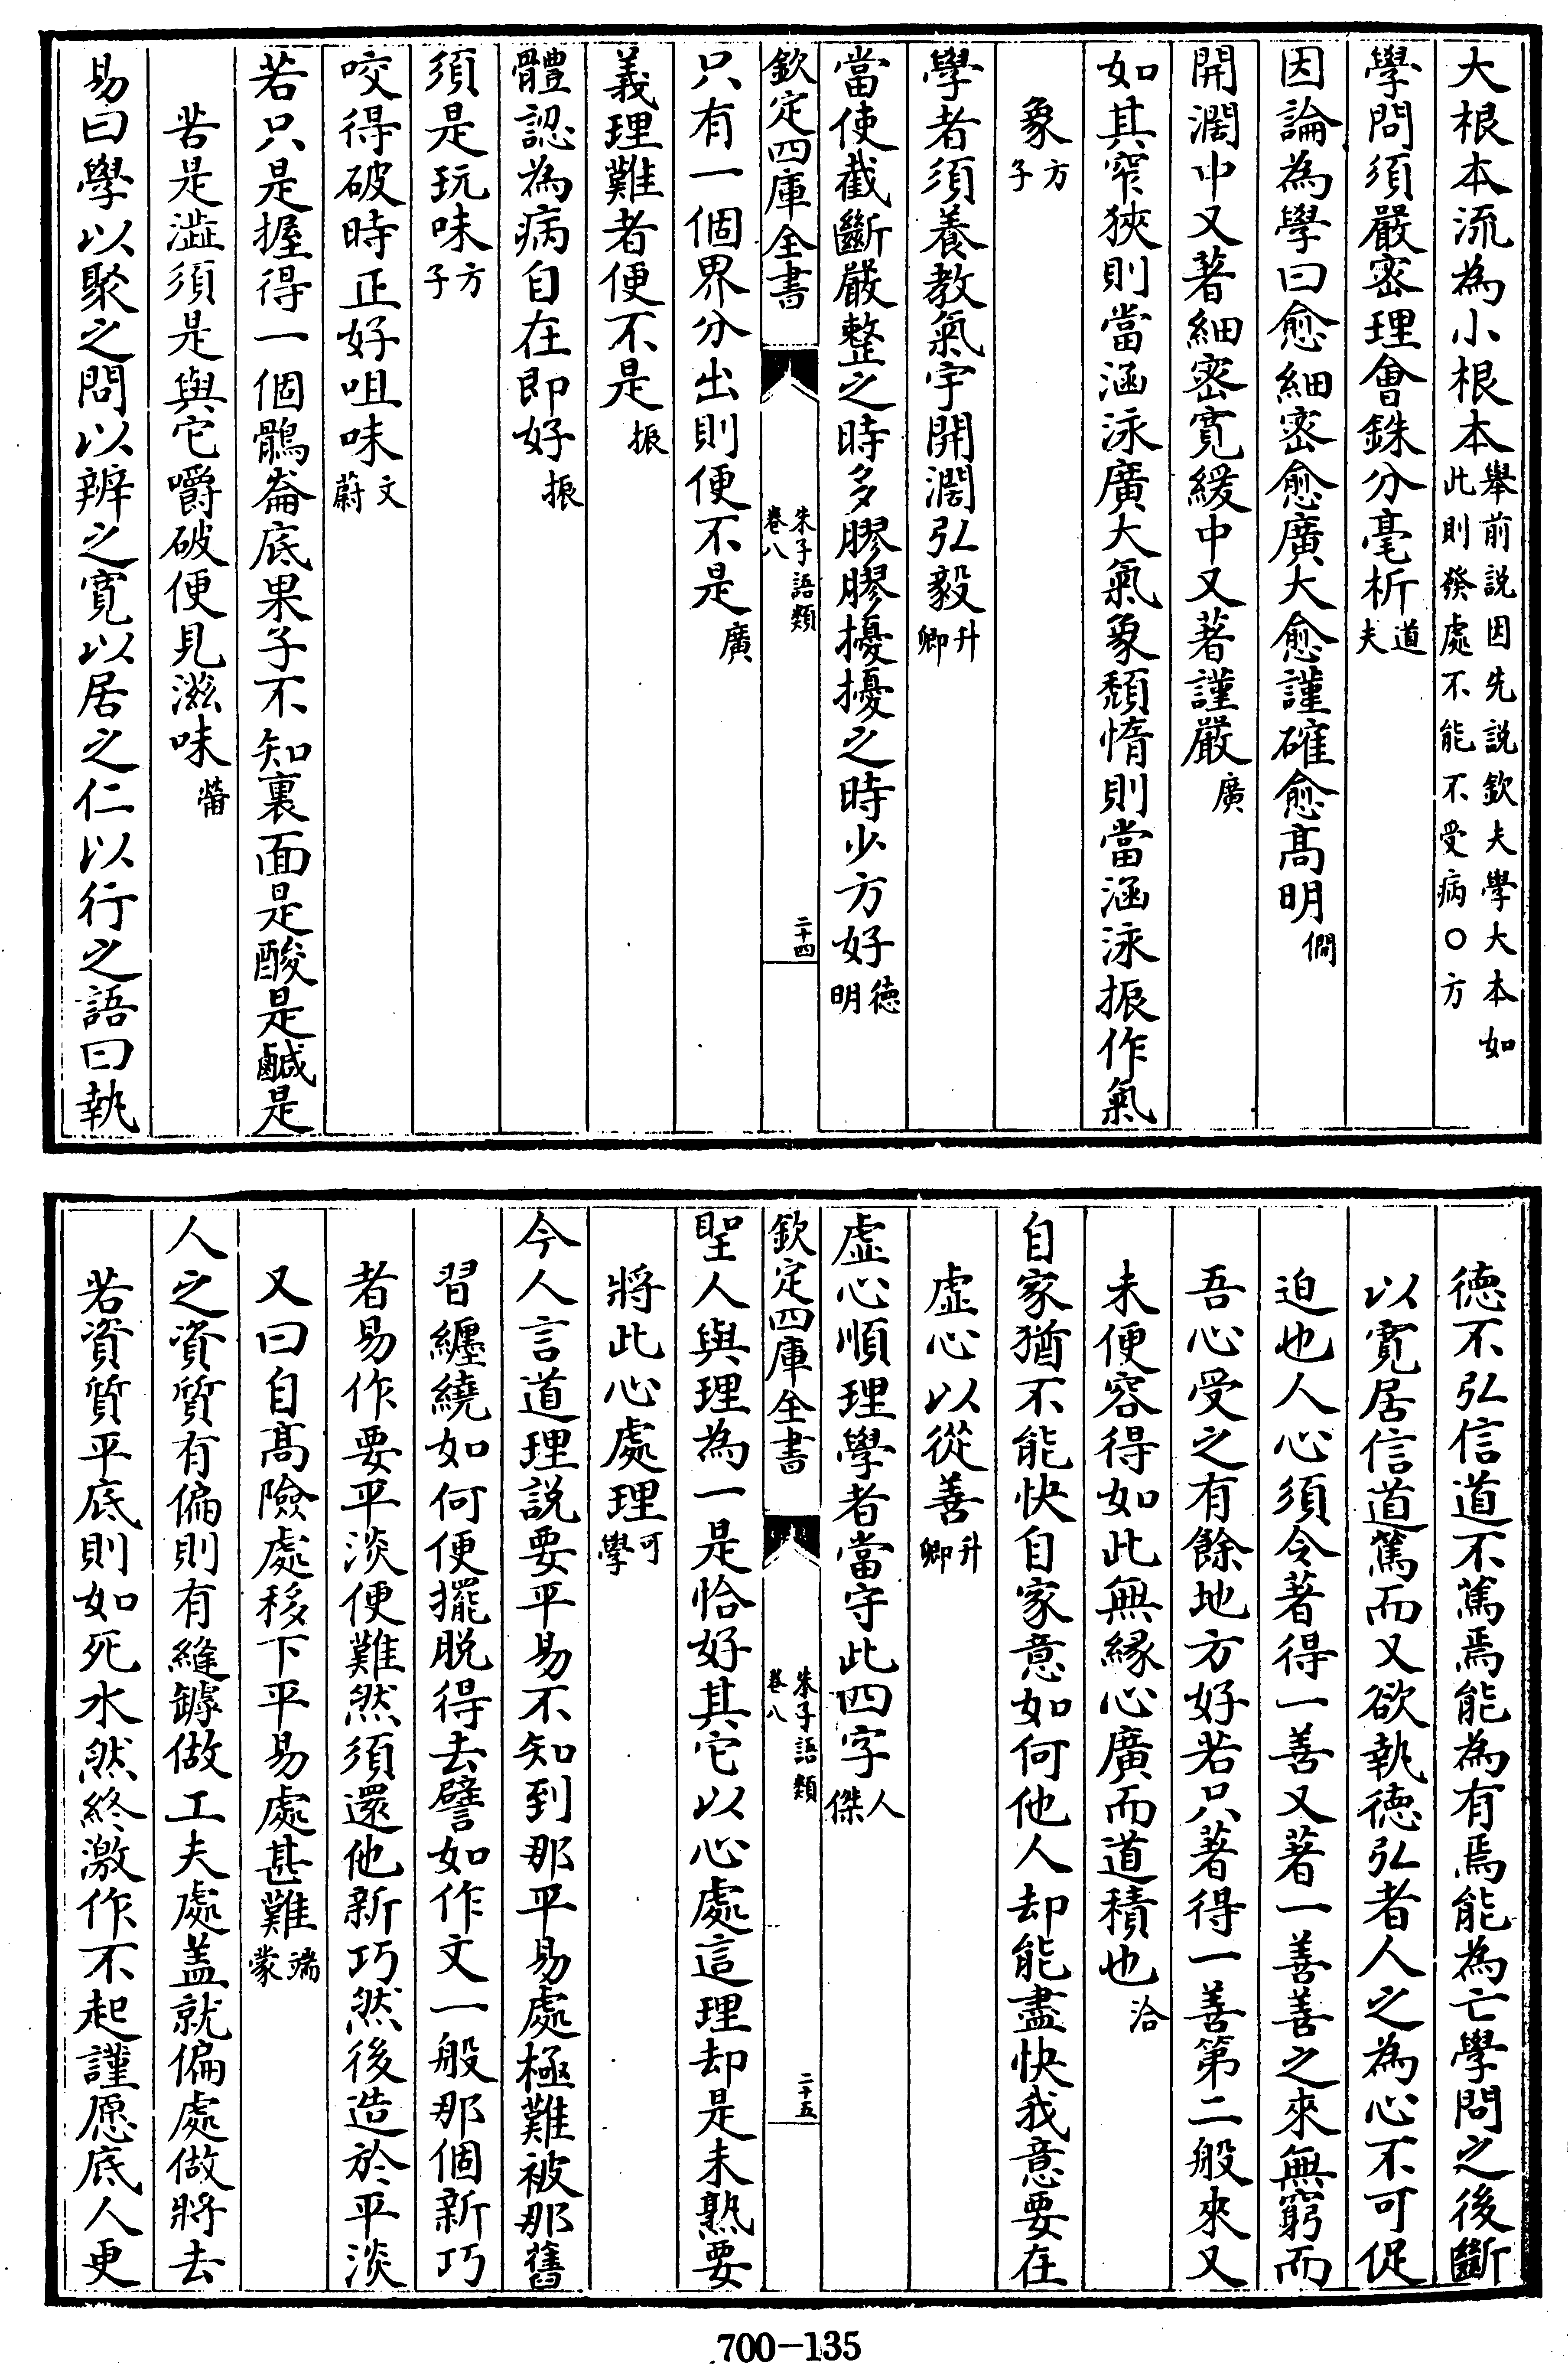 大根本流為小根本舉前説因先説欽夫學大本如此則發處不能不受病○方
學問須嚴密理會銖分毫析道夫
因論為學曰愈細密愈廣大愈謹確愈髙明僩
開濶中又著細密寛緩中又著謹嚴廣
如其窄狹則當涵泳廣大氣象頽惰則當涵泳振作氣
象方子
學者須養教氣宇開濶弘毅升卿
當使截斷嚴整之時多膠膠擾擾之時少方好德明
欽定四庫全書
朱子語類
卷八
二十四
只有一個界分出則便不是廣
義理難者便不是振
體認為病自在即好振
須是玩味方子
咬得破時正好咀味文蔚
若只是握得一個鶻崙底果子不知裏面是酸是鹹是
苦是澁須是與它嚼破便見滋味㽦
易曰學以聚之問以辨之寛以居之仁以行之語曰執
德不弘信道不篤焉能為有焉能為亡學問之後斷
以寛居信道篤而又欲執德弘者人之為心不可促
迫也人心須令著得一善又著一善善之來無窮而
吾心受之有餘地方好若只著得一善第二般來又
未便容得如此無緣心廣而道積也洽
自家猶不能快自家意如何他人却能盡快我意要在
虛心以從善升卿
虛心順理學者當守此四字人傑
欽定四庫全書
朱子語類
卷八
二十五
聖人與理為一是恰好其它以心處這理却是未熟要
將此心處理可學
今人言道理説要平易不知到那平易處極難被那舊
習纏繞如何便擺脱得去譬如作文一般那個新巧
者易作要平淡便難然須還他新巧然後造於平淡
又曰自髙險處移下平易處甚難端蒙
人之資質有偏則有縫罅做工夫處盖就偏處做將去
若資質平底則如死水然終激作不起謹愿底人更
700-135